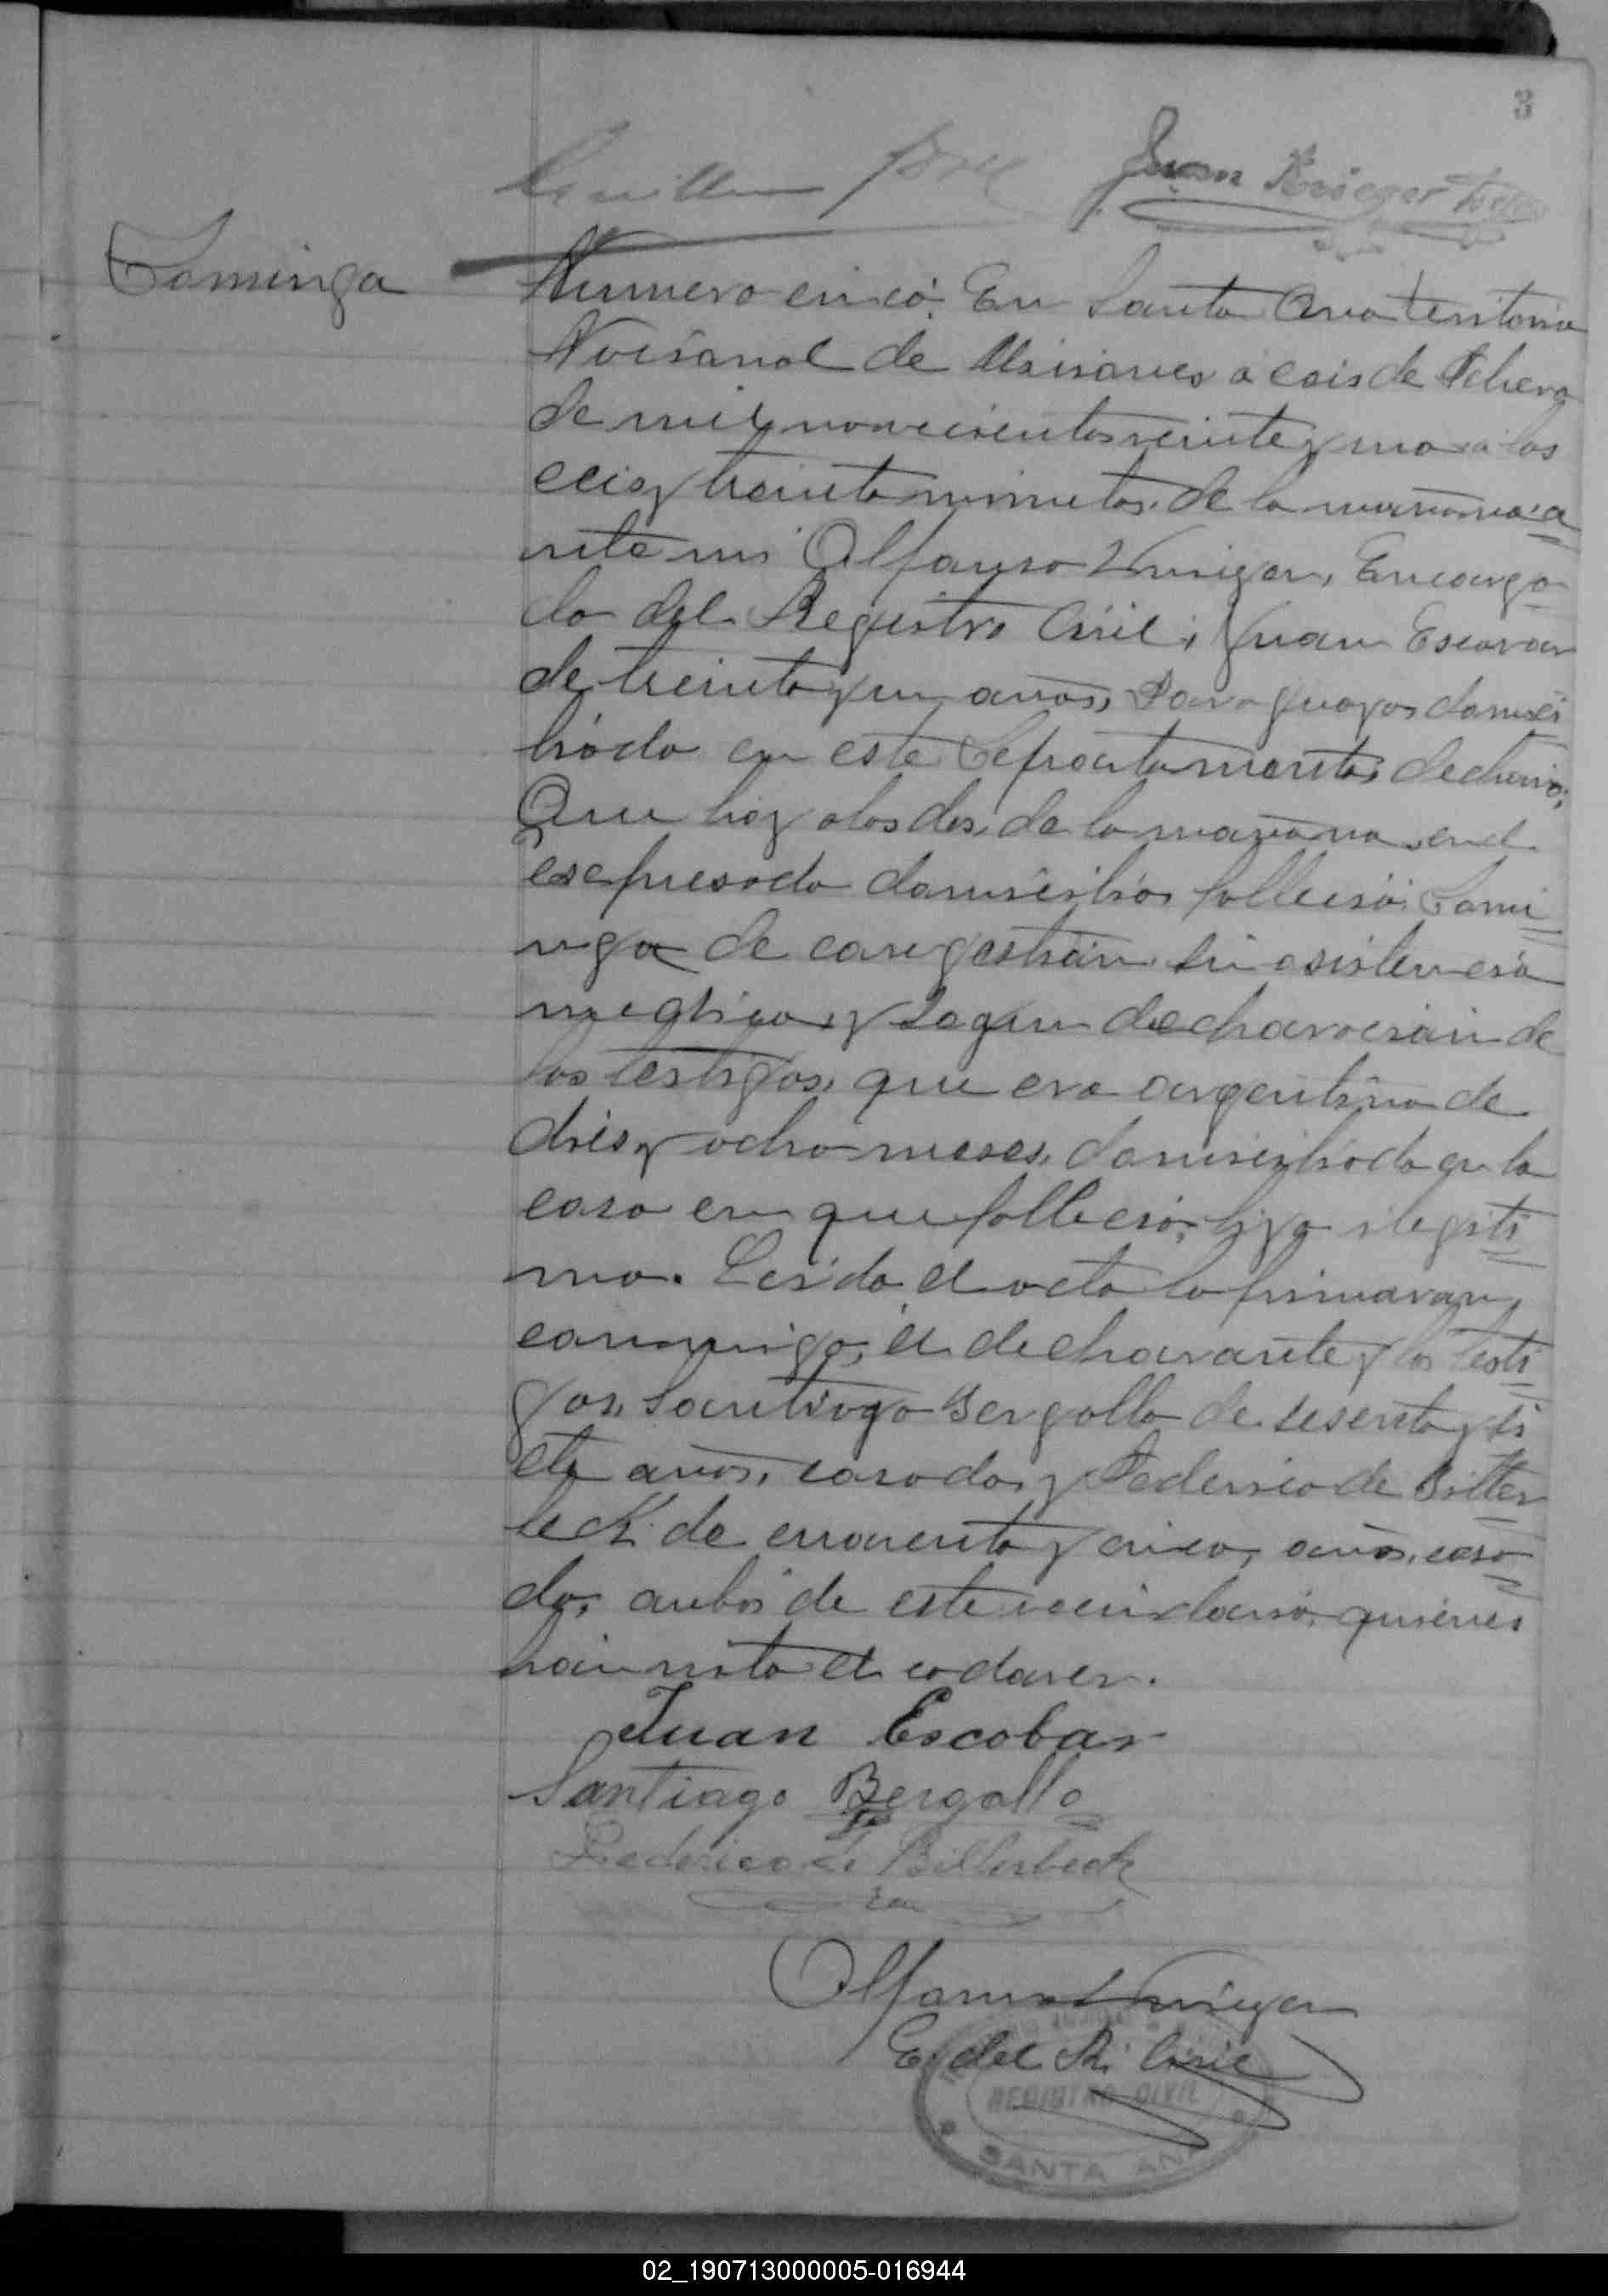 3
Juan Krieger
Dominga
Numero cinco. En Santa Ana territorio
Nacional de Misiones a seis de Febrero
de mil novecientos veinte y uno a las
seis y treinta minutos de la mañana a
nte mi Alfonso Encarga
do del Registro Civil; Juan Escovar
de treinta y un años, Paraguayo domici
liado en este Departamento, declaro;
Que hoy a las dos de la mañana en el
espresado domicilio fallecio Domi
nga de congestion sin asistencia
medica y segun declaracion de
los testigos que era argentina de
dies y ocho meses domiciliada en la
casa en que fallecio, hija ilegiti
ma. Leida el acta la firmaron
conmigo, el declarante y los testi
gos, Santiago Bergallo de sesenta y si
ete años, casado, y Federico de Biller
beck de cuarenta y cinco años, casa
do, anbos de este vecindario, quienes
han visto el cadaver.
Juan Escobar
Santiago Bergallo
Federico de Billerbeck
Alfonso
E. del R. Civil
REGISTRO CIVIL
SANTA ANA
02_190713000005-016944